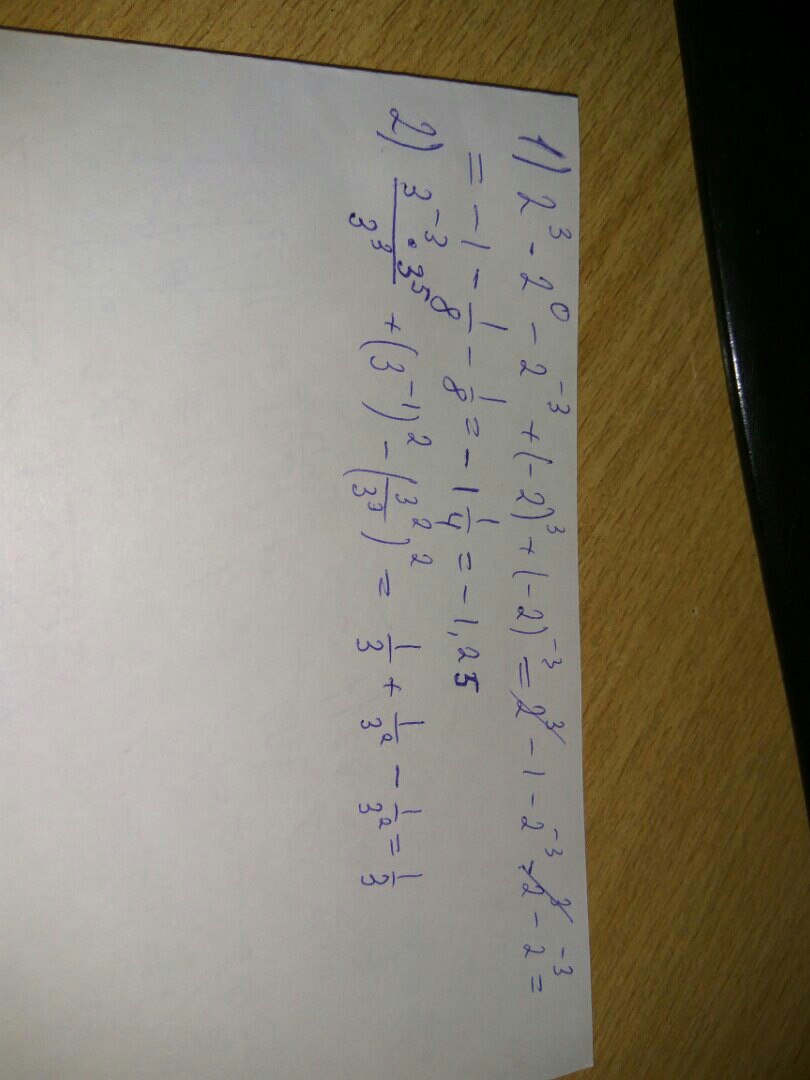 1) 2³ - 2⁰ - 2⁻³ + (-2)³ + (-2)⁻³ = 2³ - 1 - 2⁻³ - 2³ - 2⁻³ =
= -1 - 1/8 - 1/8 = -1 1/4 = -1,25
2) (3⁻³ · 3⁵)/3³ + (3⁻¹)² - (3²/3³)² = 1/3 + 1/3² - 1/3² = 1/3